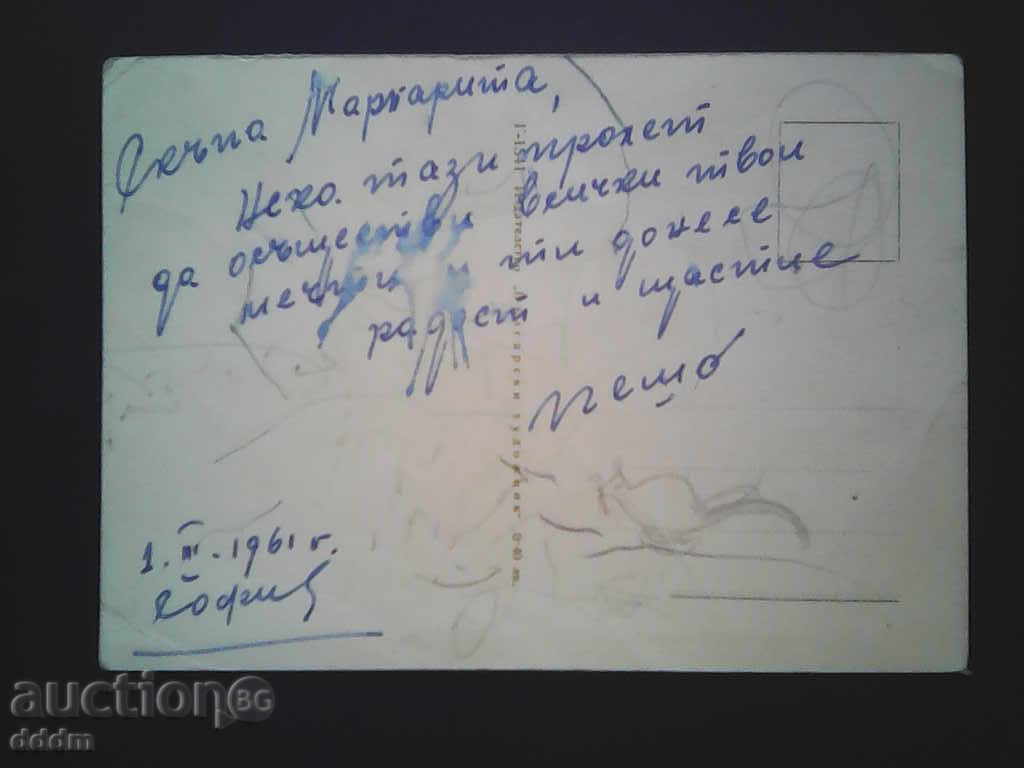 Скъпа Маргарита,
Нека тази пролет
да осъществи всички твои
мечти и ти донесе
радост и щастие
Пешо
1. III. 1961 г.
София
български художник
auction BG
dddm